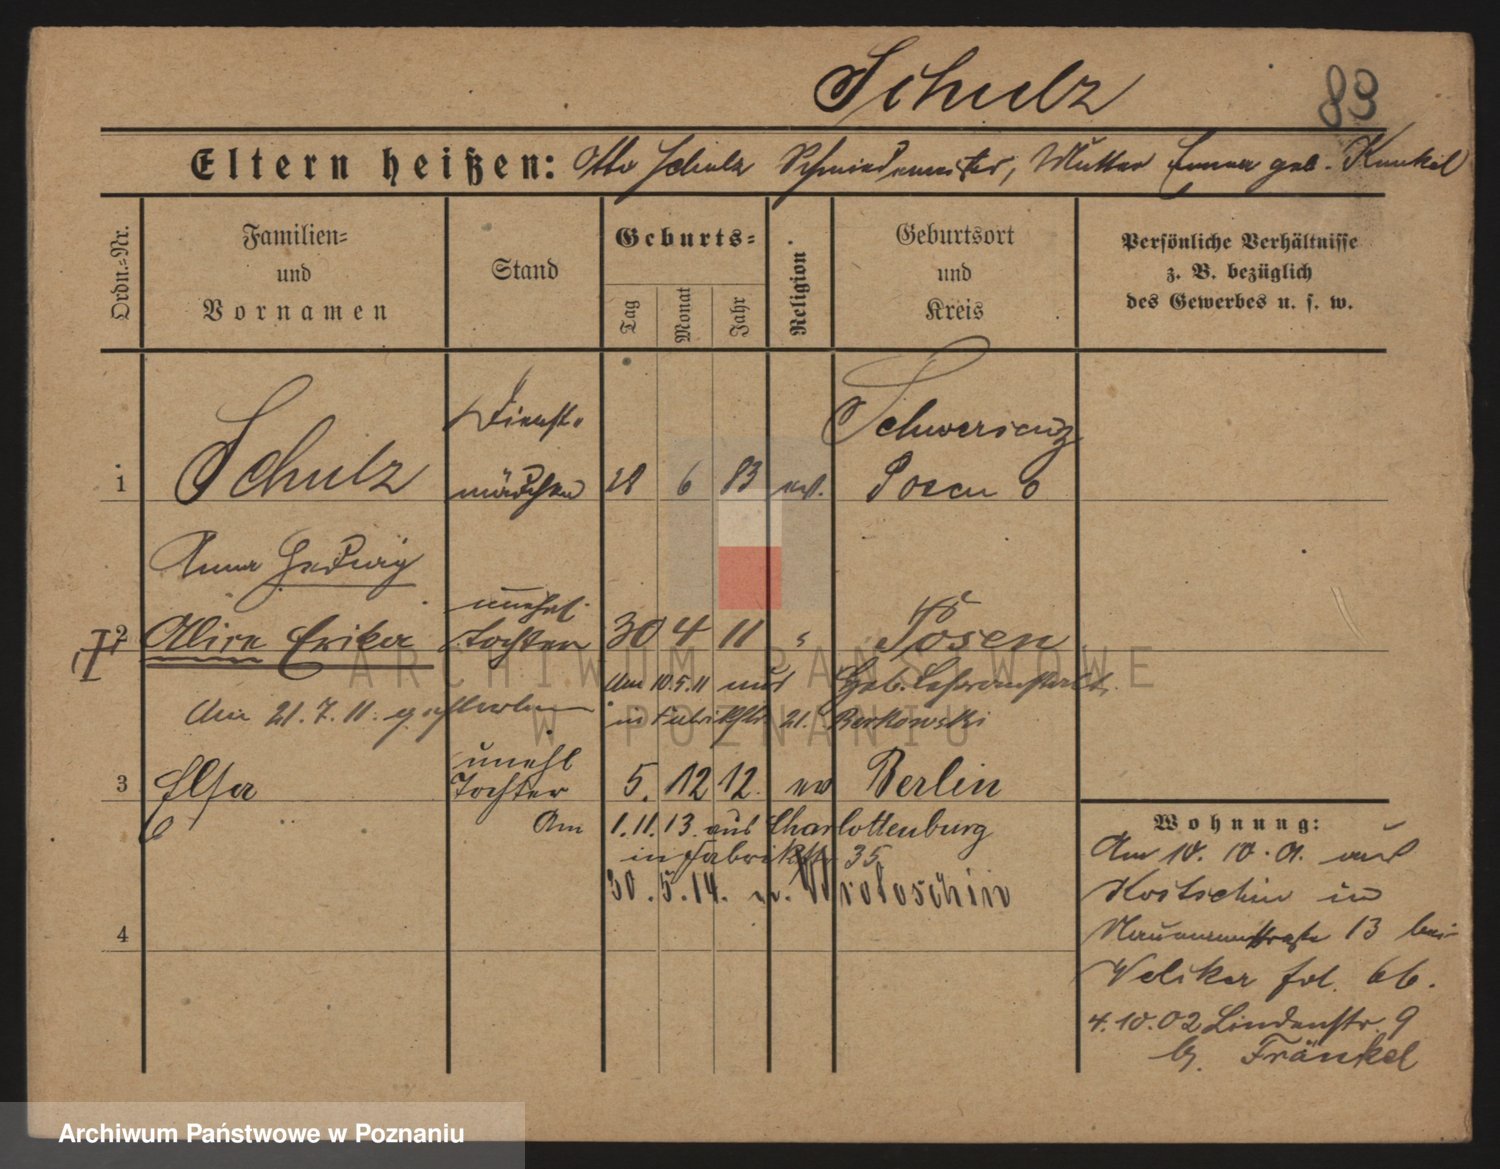 Schulz
83
Eltern heißen: Otto Schulz Schmiedemeister, Mutter Emma geb. Kunkel
Ordn.-Nr.
Familien-
und
Vornamen
Stand
Geburts-
Tag
Monat
Jahr
Religion
Geburtsort
und
Kreis
Persönliche Verhältnisse
z. B. bezüglich
des Gewerbes u. s. w.
Dienst-
Schwersenz
1 Schulz mädchen 28 6 83 ev. Posen O
Anna Hedwig
unehel.
2 Alice Erika Tochter 30 4 11 " Posen
Am 10.5.11 aus Heb. Lehranstalt
Am 21.7.11. gestorben in Fabrikstr. 21. Berkowski
unehl
3 Elsa Tochter 5. 12 12. ev Berlin
Am 1.11.13. aus Charlottenburg
in Fabrikstr 35
30.5.14. n. Wroloschin
4
Wohnung:
Am 10.10.01. aus
Kostschin in
Naumannstraße 13 bei
Veliker fol. 66.
4.10.02 Lindenstr. 9
b. Fränkel
ARCHIWUM PAŃSTWOWE
W POZNANIU
Archiwum Państwowe w Poznaniu